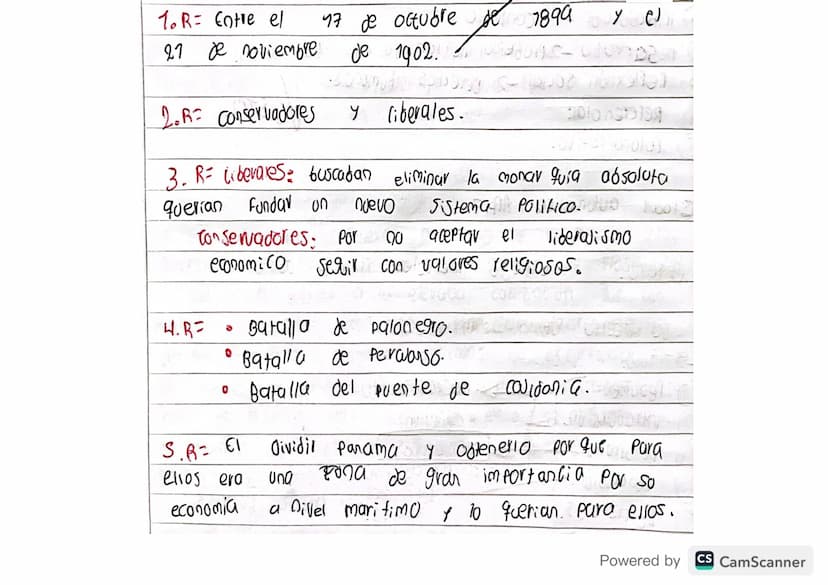 1.R= Entre el 17 de octubre de 1899 y el
21 de noviembre de 1902.
2.R= conservadores y liberales.
3. R= Liberales: buscaban eliminar la monarquia absoluta
querian fundar un nuevo sistema politico.
Conservadores: por no aceptar el liberalismo
economico seguir con valores religiosos.
4.R= • Batalla de palonegro.
• Batalla de Peralonso.
• Batalla del puente de calidonia.
5.R= El dividir panama y obtenerlo por que para
ellos era una zona de gran importancia por so
economia a nivel maritimo y lo querian para ellos.
Powered by CS CamScanner